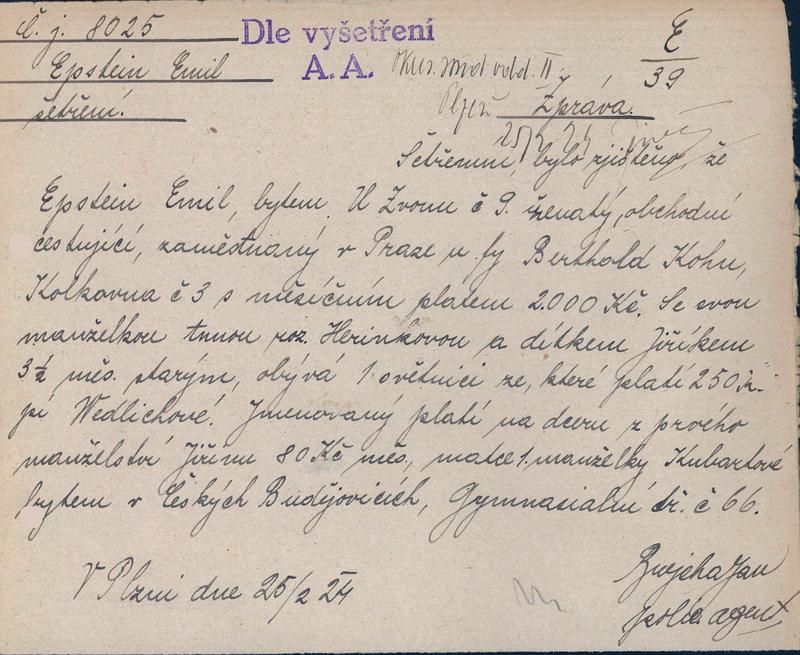 Č. j. 8025
Dle vyšetření
A. A.
E
39
Epstein Emil
šetření.
odd. II.
Plzeň
Zpráva.
Šetřením, bylo zjištěno, že
Epstein Emil, bytem U Zvonu č 9. ženatý, obchodní
cestující, zaměstnaný v Praze u fy Berthold Kohn,
Kolkovna č 3 s měsíčním platem 2.000 Kč. Se svou
manželkou Annou roz. Herinkovou a dítkem Jiříkem
3½ měs. starým, obývá 1 světnici ze, které platí 250 K-
pí Wedlichové. Jmenovaný platí na dceru z prvého
manželství Jiřinu 80 Kč měs., matce 1. manželky Kubartové
bytem v Českých Budějovicích, Gymnasialní tř. č 66.
V Plzni dne 25/2 24
Jan
polic. agent